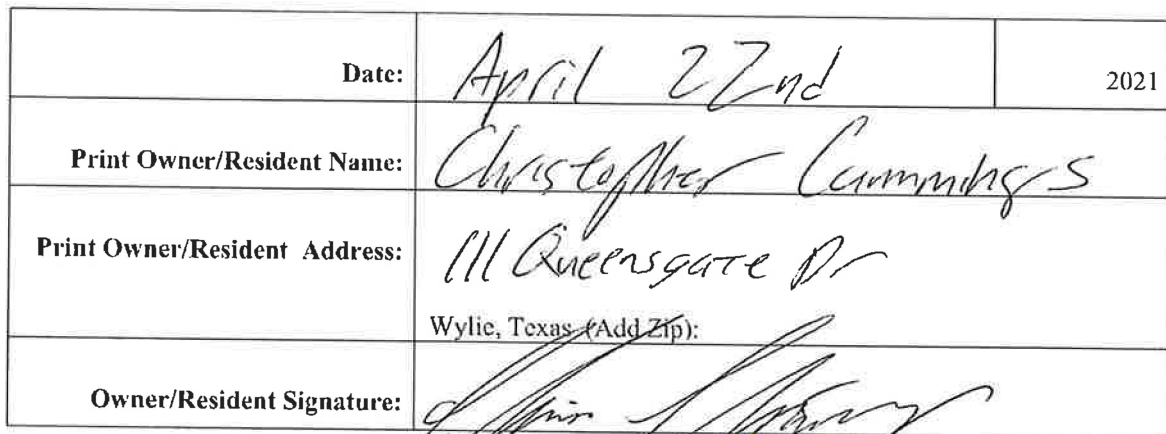 Date: April 22nd 2021
Print Owner/Resident Name: Christopher Cummings
Print Owner/Resident Address: 111 Queensgate Dr
Wylie, Texas (Add Zip):
Owner/Resident Signature: